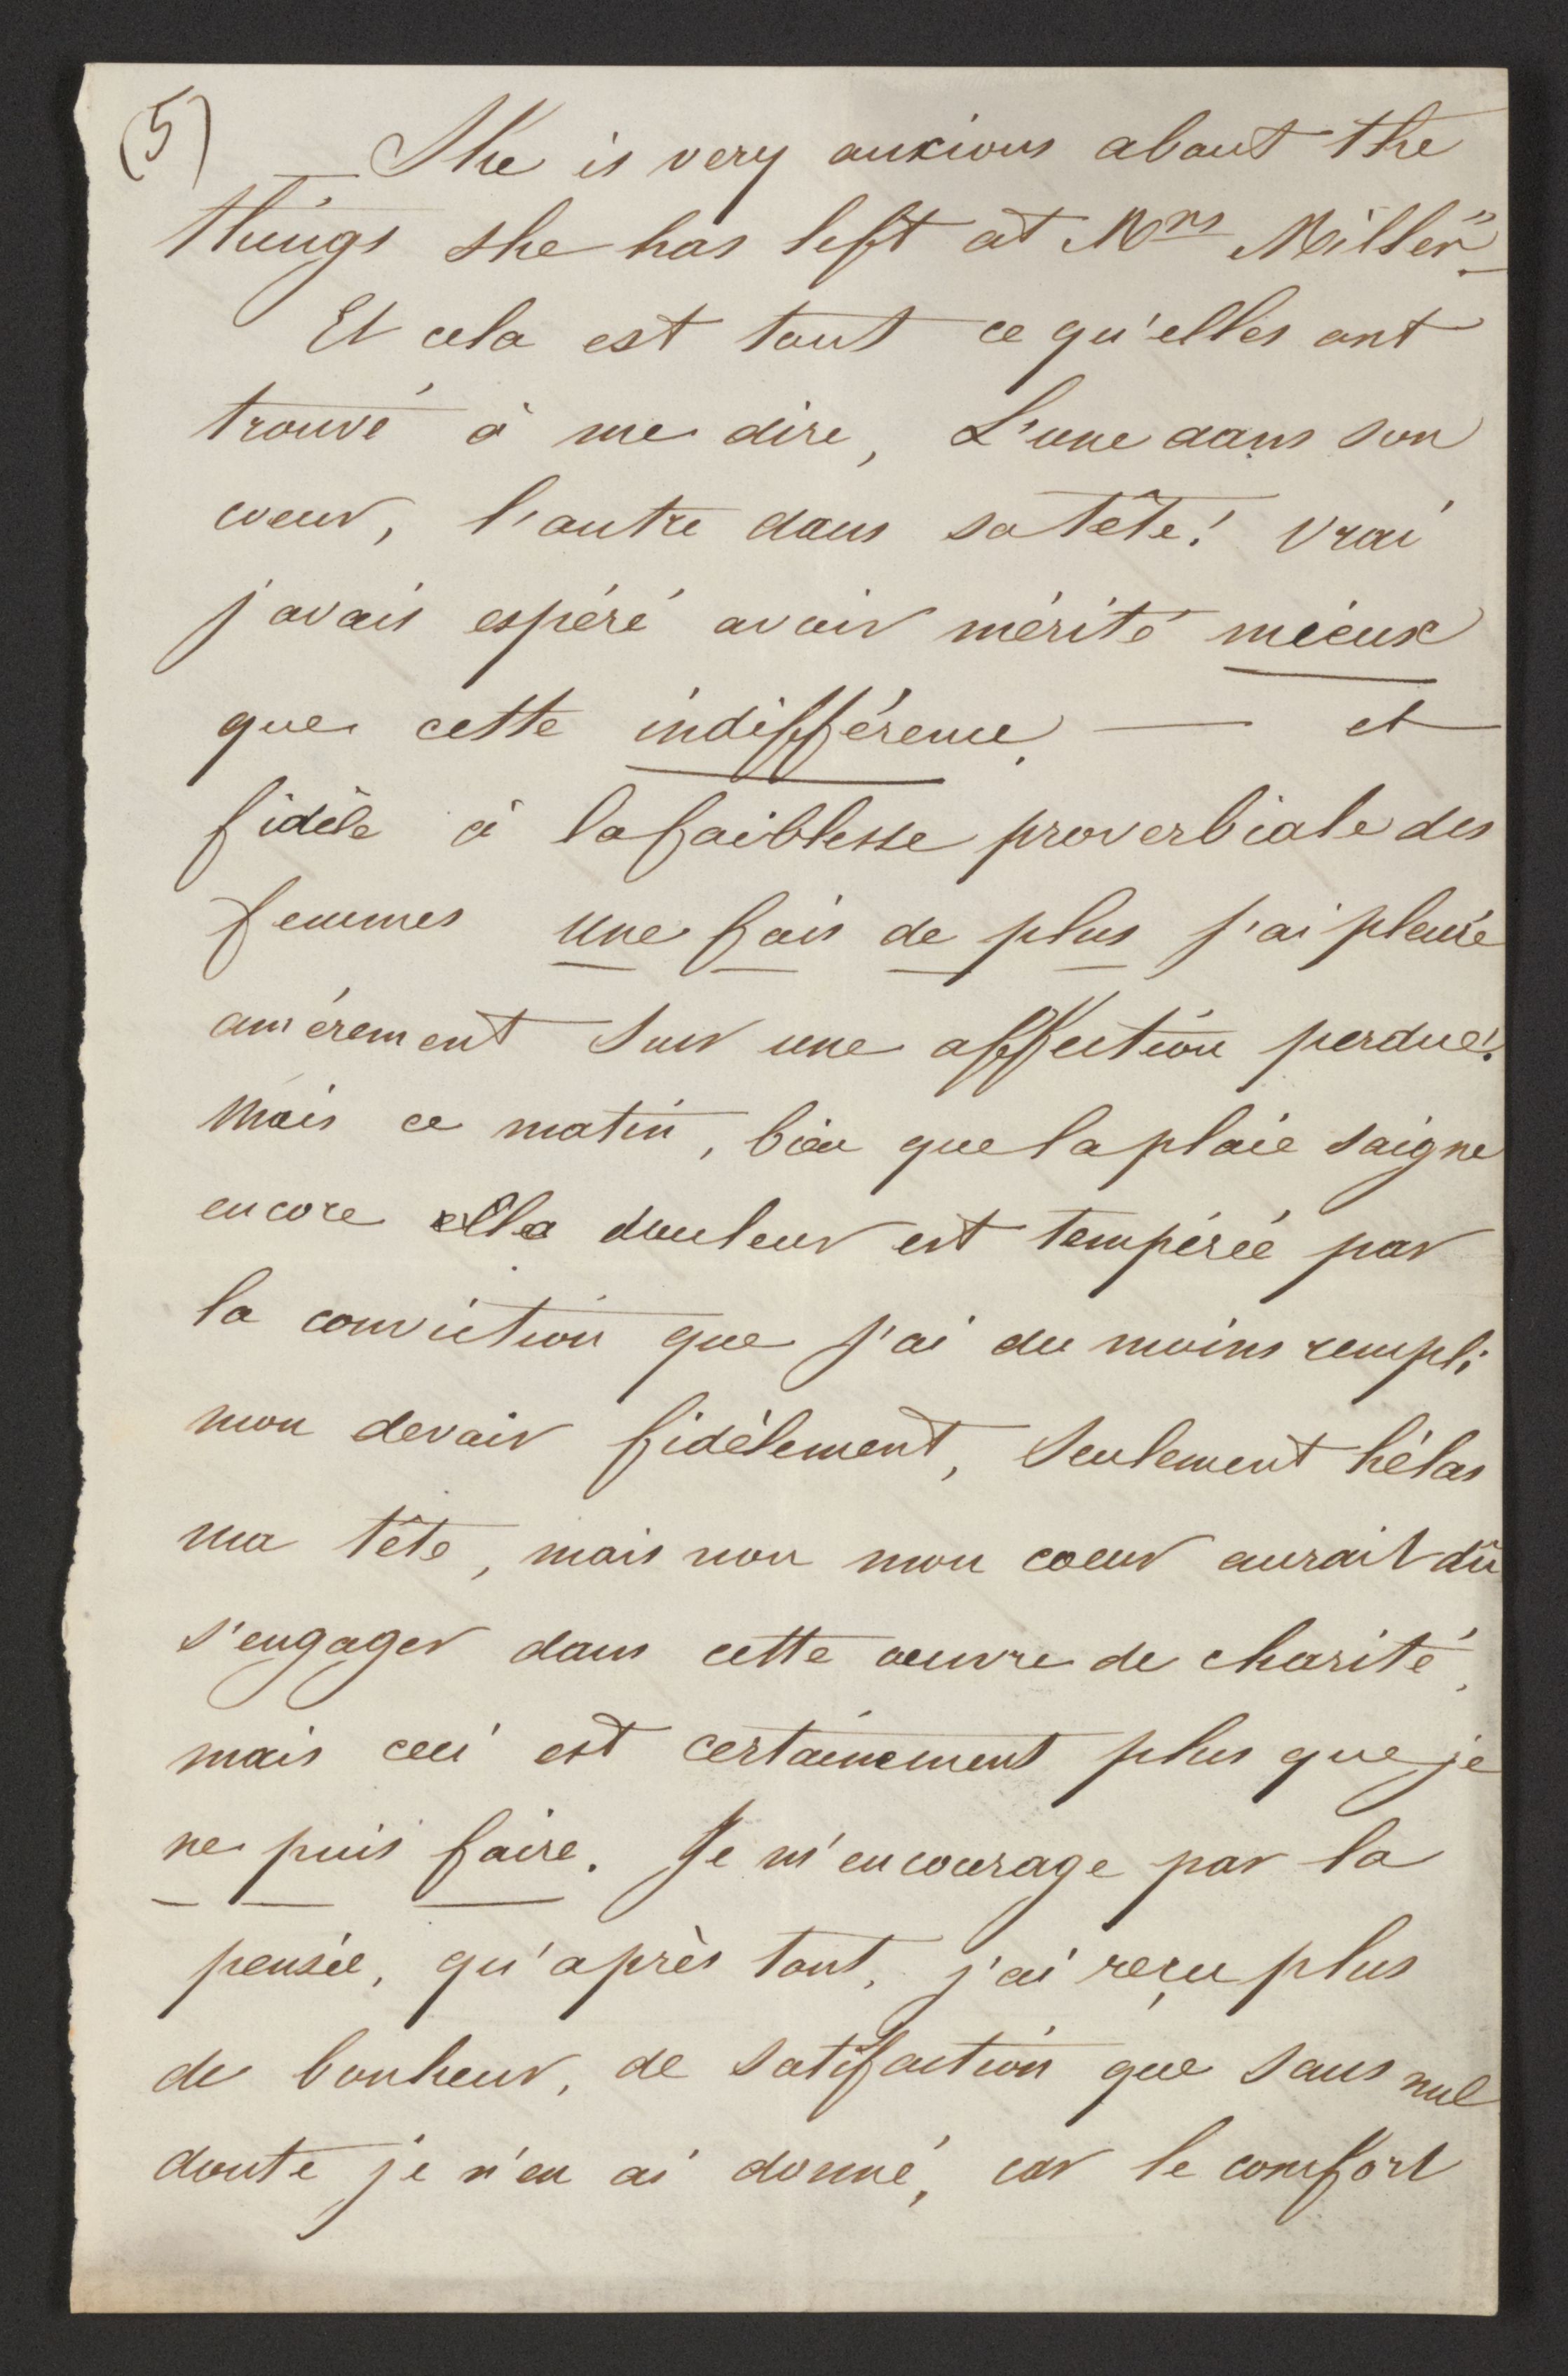 (5)
She is very anxious about the
things she has left at Mrs Miller"
Et cela est tout ce qu'elles ont
trouvé à me dire, L'une dans son
coeur, l'autre dans sa tête! Vrai
j'avais espéré avoir mérité mieux
que cette indifférence — et
fidèle à la faiblesse proverbiale des
femmes une fois de plus j'ai pleuré
amérement sur une affection perdue!
Mais ce matin, bien que la plaie saigne
encore la douleur est tempérée par
la conviction que j'ai du moins rempli
mon devoir fidèlement, Seulement hélas
ma tête, mais non mon coeur aurait dû
s'engager dans cette oeuvre de charité,
mais ceci est certainement plus que je
ne puis faire. Je m'encourage par la
pensée, qu'après tout, j'ai reçu plus
de bonheur, de satifaction que sans nul
doute je n'en ai donné, car le comfort